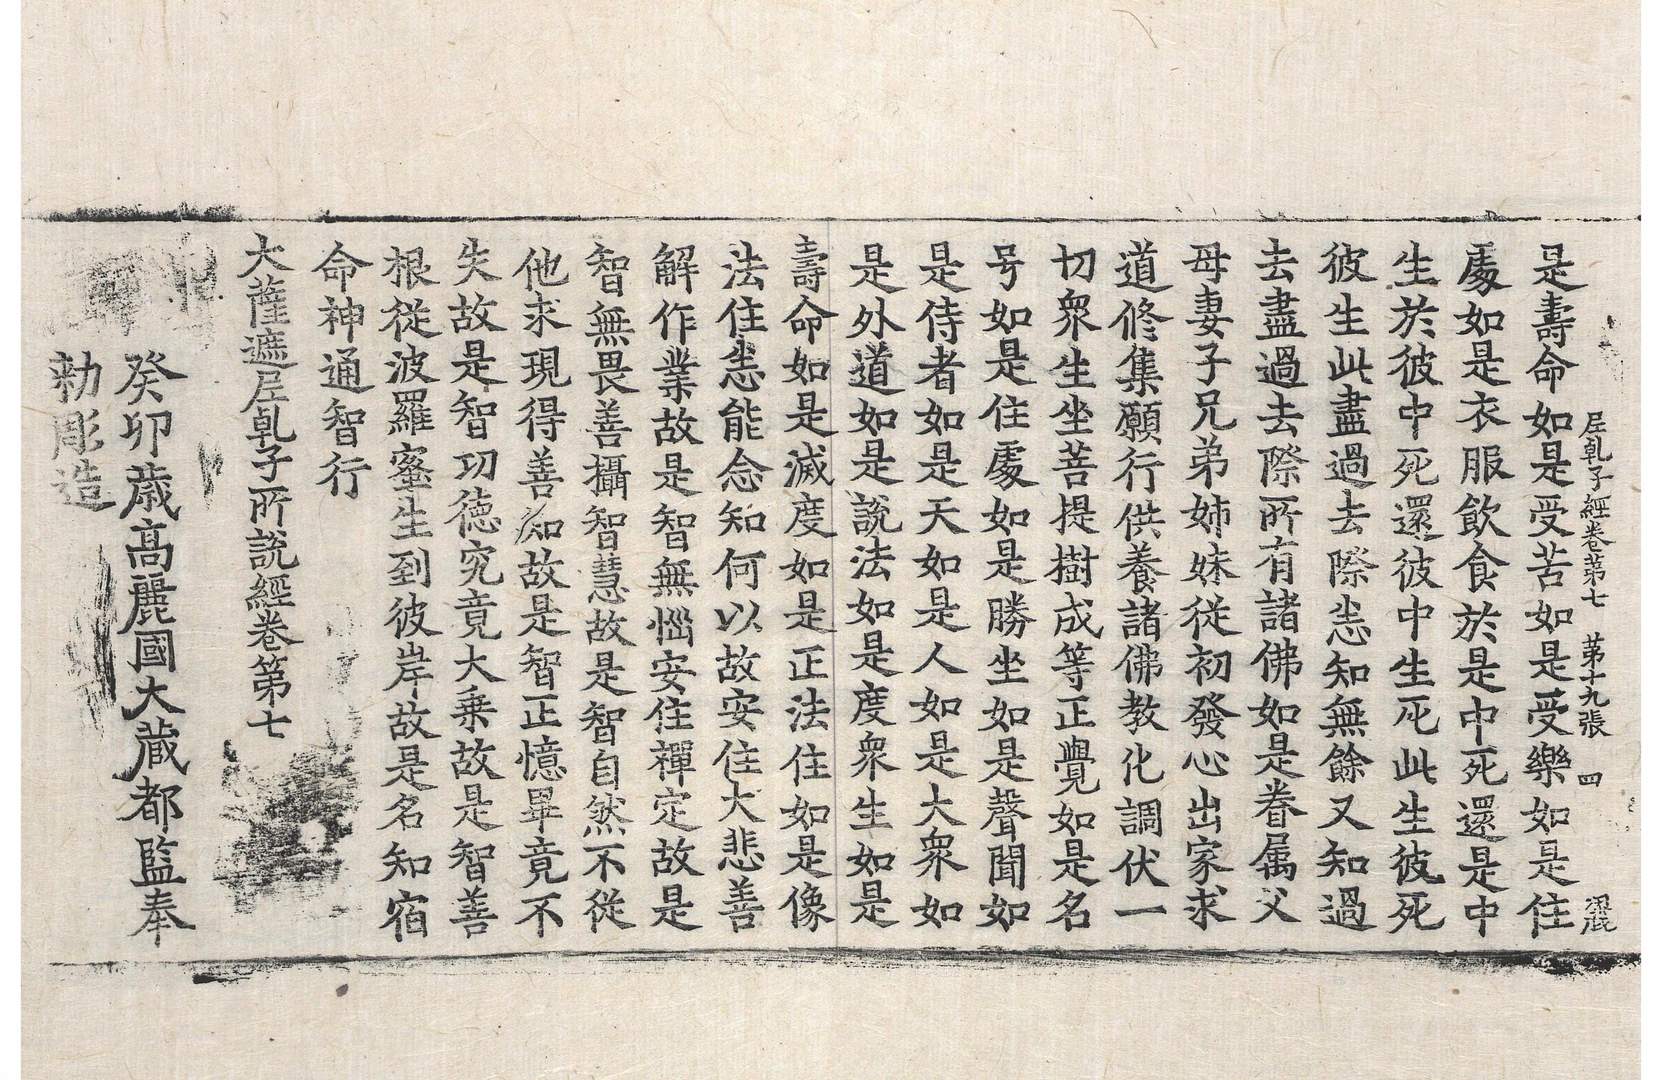 𡰱乹子經卷第七　第十九張　四
是壽命如是受苦如是受樂如是住
處如是衣服飲食於是中死還是中
生於彼中死還彼中生死此生彼死
彼生此盡過去際悉知無餘又知過
去盡過去際所有諸佛如是眷属父
母妻子兄弟姉妹從初發心出家求
道修集願行供養諸佛教化調伏一
切衆生坐菩提樹成等正覺如是名
号如是住處如是勝坐如是聲聞如
是侍者如是天如是人如是大衆如
是外道如是說法如是度衆生如是
壽命如是滅度如是正法住如是像
法住悉能念知何以故安住大悲善
解作業故是智無惱安住禪定故是
智無畏善攝智慧故是智自然不從
他求現得善知故是智正憶畢竟不
失故是智功德究竟大乗故是智善
根從波羅蜜生到彼岸故是名知宿
命神通智行
大薩遮𡰱乹子所說經卷第七
癸卯歲高麗國大藏都監奉
勑彫造